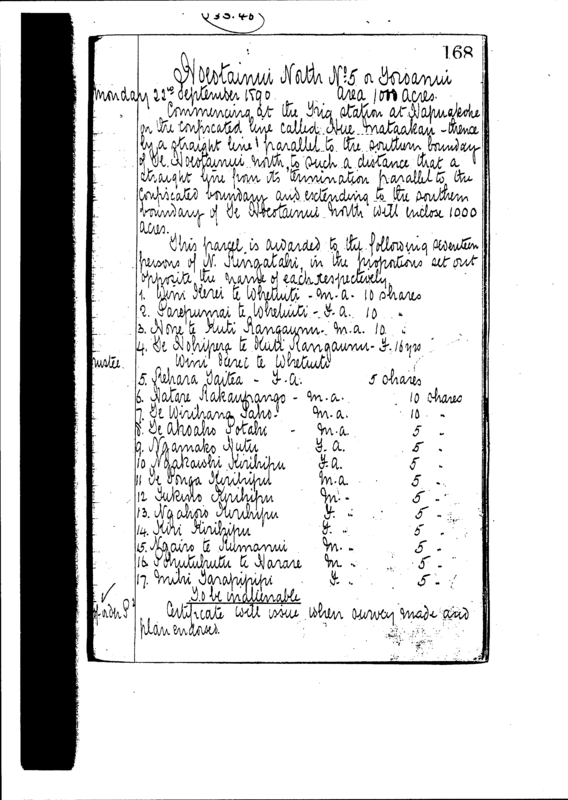 168
Hoeotainui North No 5 or Toroanui
Monday 22nd September 1890. Area 1000 acres.
Commencing at the Trig station at Hapuakohe
on the confiscated line called Hue mataakau - thence
by a straight line parallel to the southern boundary
of Te Hoeotainui north to such a distance that a
straight line from its termination parallel to the
confiscated boundary and extending to the southern
boundary of Te Hoeotainui North will enclose 1000
acres.
This parcel is awarded to the following seventeen
persons of N. in the proportions set out
opposite the name of each respectively
1. Wini Kerei te Whetuiti - m.a. 10 shares
2. Parepumai te Whetuiti - F.a. 10 "
3. Hone te Kuti Rangaunu - m.a. 10 "
4. Te Kuti Rangaunu - F. 16 yrs
trustee Wini Kerei te Whetuiti
5. Rehara Taitea - F.a. 5 shares
6. Hatare Rakaupango - m.a. 10 shares
7. Te Wirihana m.a. 10 "
8. Te Ahoaho Potahi - m.a. 5 "
9. Ngamako Hutu F.a. 5 "
10 Ngakawhi Kirihipu F.a. 5 "
11 Te Ponga Kirihipu m.a 5 "
12 Tukino Kirihipu m. " 5 "
13. Ngahoro Kirihipu F. " 5 "
14. Kiri Kirihipu F. " 5 "
15. Ngairo te Rumanui m. " 5 "
16. Pohutuhutu te Harare m " 5 "
17. Mihi Tarapipipi F. " 5 "
To be inalienable
Certificate will issue when survey made and
plan endorsed.